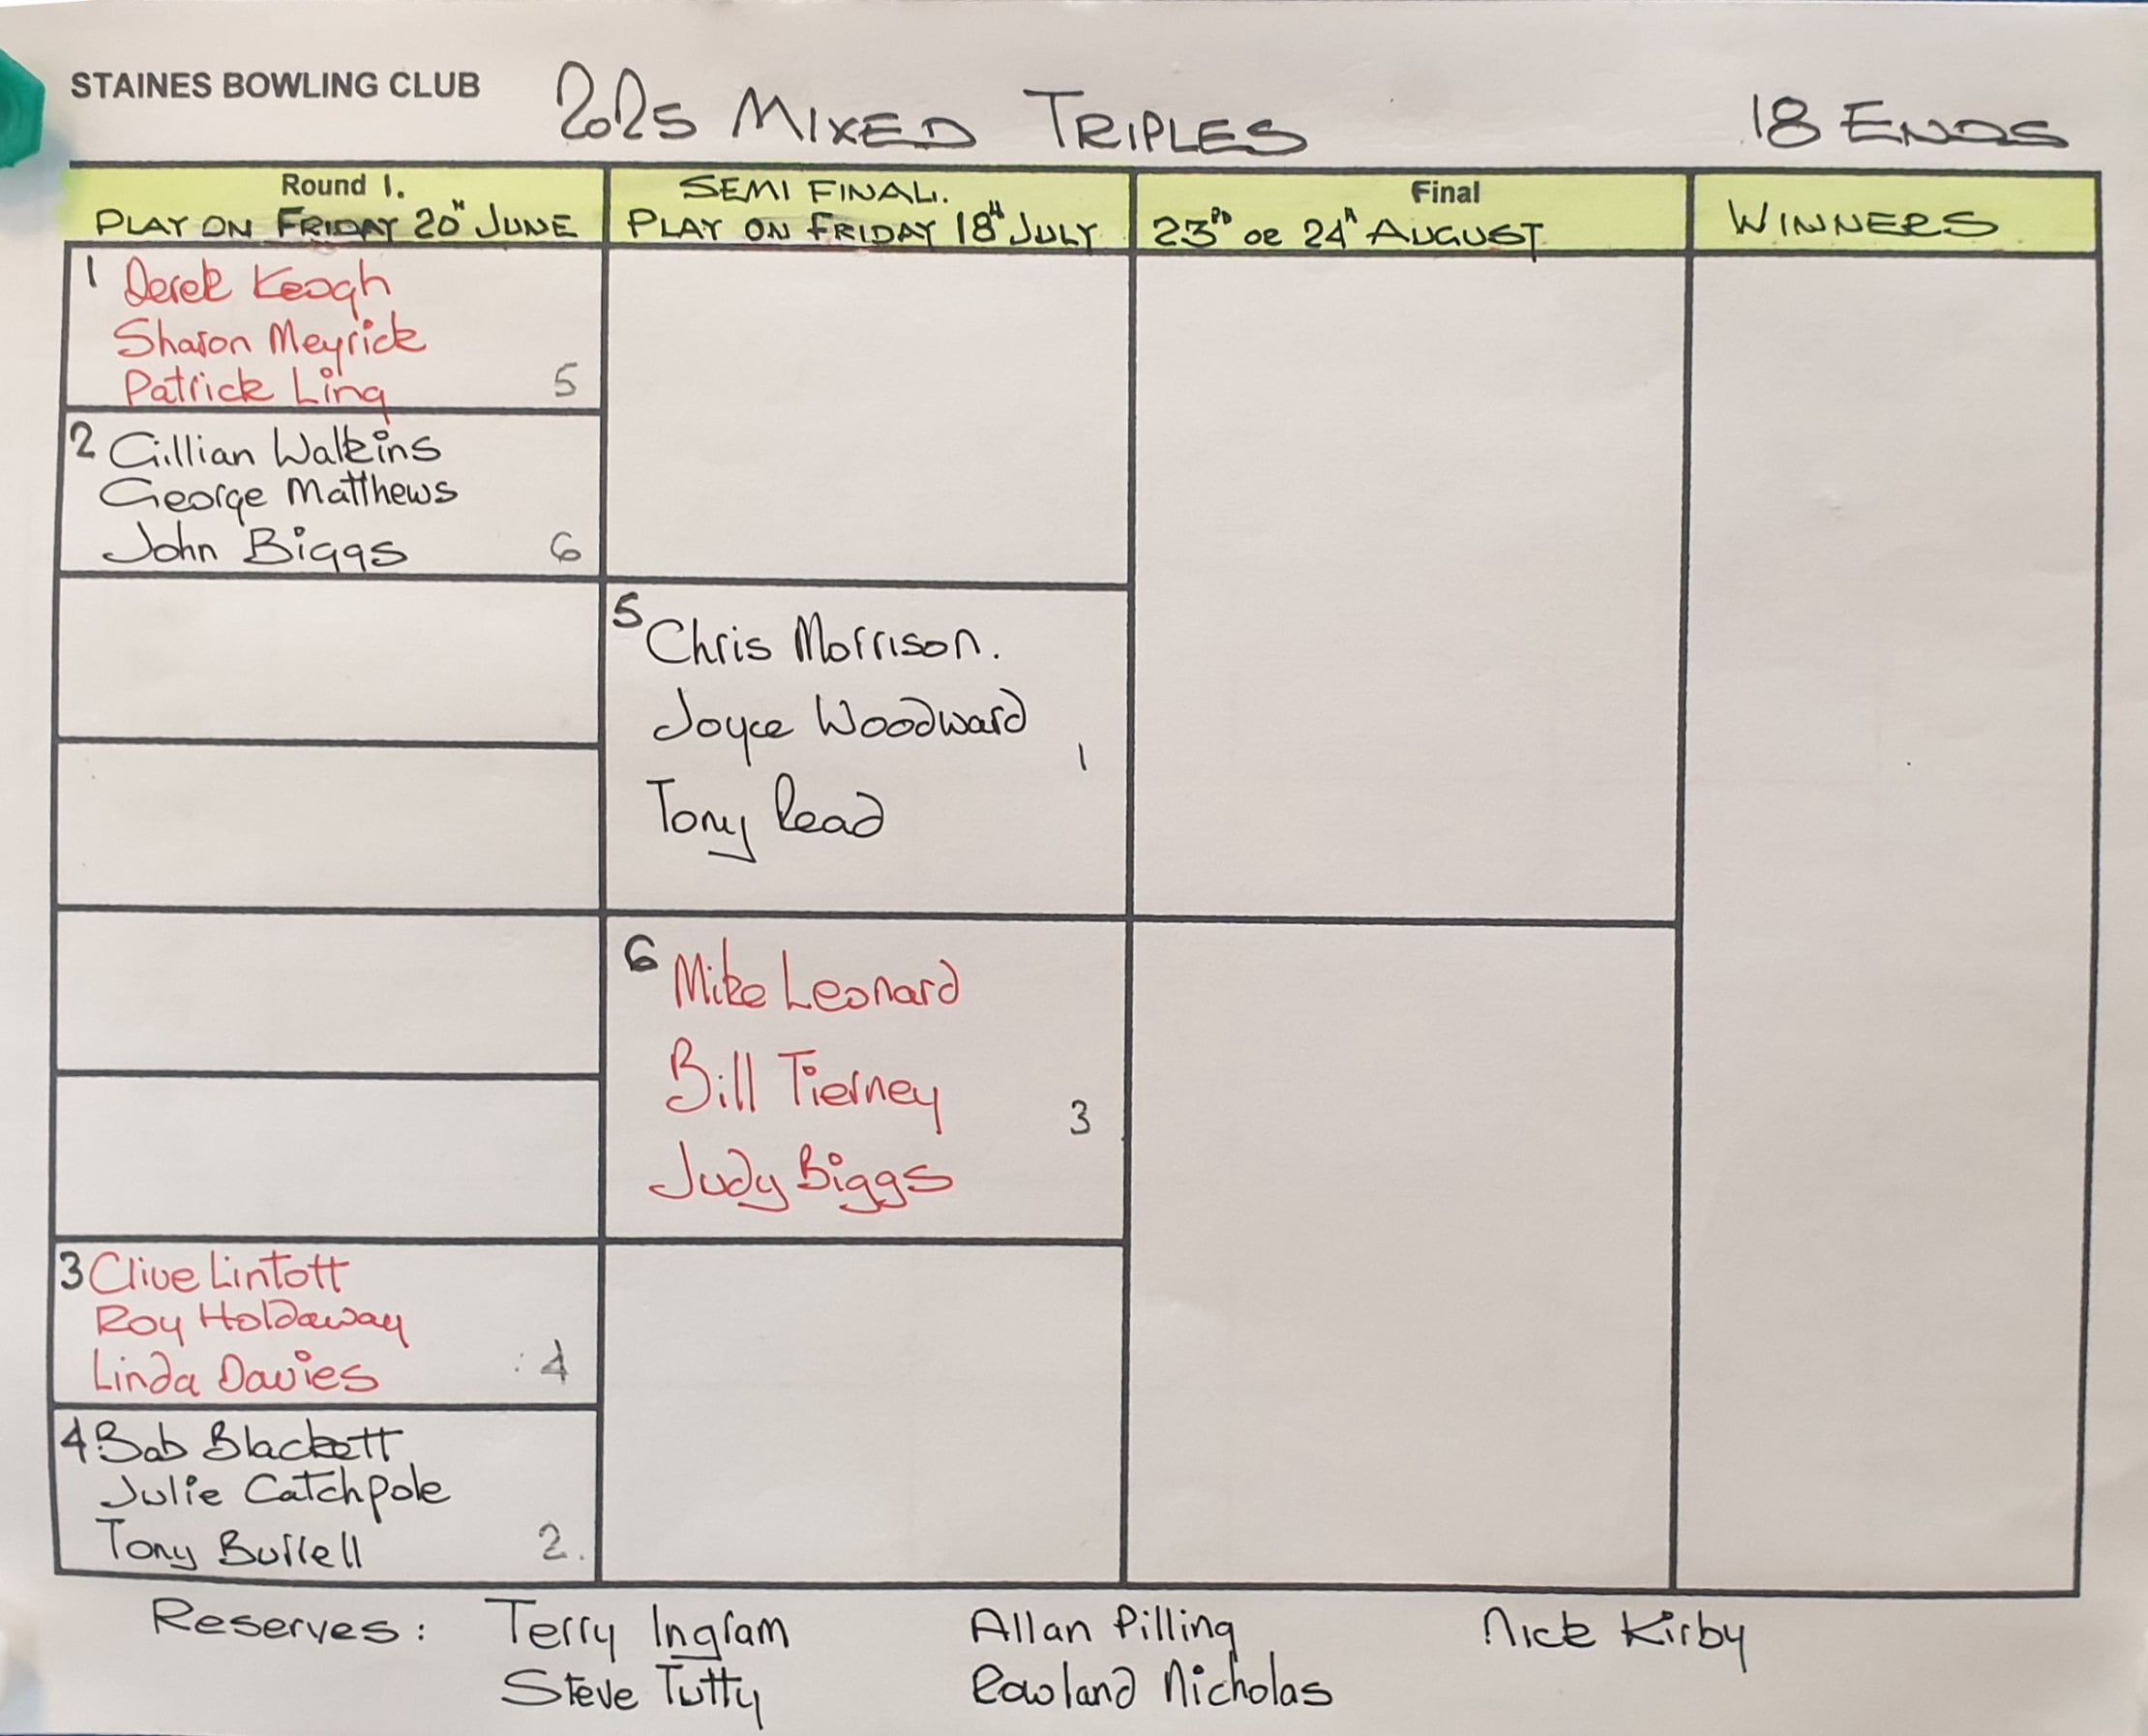 STAINES BOWLING CLUB
2025 MIXED TRIPLES
18 ENDS
Round 1.
PLAY ON FRIDAY 20TH JUNE
SEMI FINAL.
PLAY ON FRIDAY 18TH JULY
Final
23RD OR 24TH AUGUST
WINNERS
1 Derek Keogh
Sharon Meyrick
Patrick Ling 5
2 Gillian Watkins
George Matthews
John Biggs 6
5 Chris Morrison.
Joyce Woodward
1
Tony Read
6 Mike Leonard
Bill Tierney
3
Judy Biggs
3 Clive Lintott
Roy Holdaway
Linda Davies 4
4 Bob Blackett
Julie Catchpole
Tony Burrell 2.
Reserves: Terry Ingram Allan Pilling Nick Kirby
Steve Tutty Rowland Nicholas